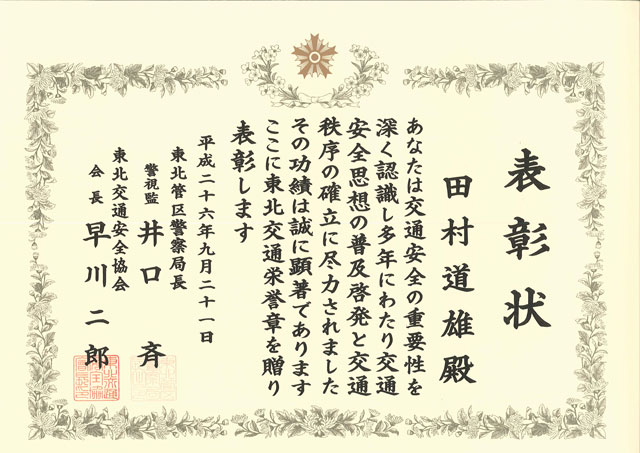 表彰状
田村道雄殿
あなたは交通安全の重要性を
深く認識し多年にわたり交通
安全思想の普及啓発と交通
秩序の確立に尽力されました
その功績は誠に顕著であります
ここに東北交通栄誉章を贈り
表彰します
平成二十六年九月二十一日
東北管区警察局長
警視監 井口 斉
東北交通安全協会
会長 早川二郎